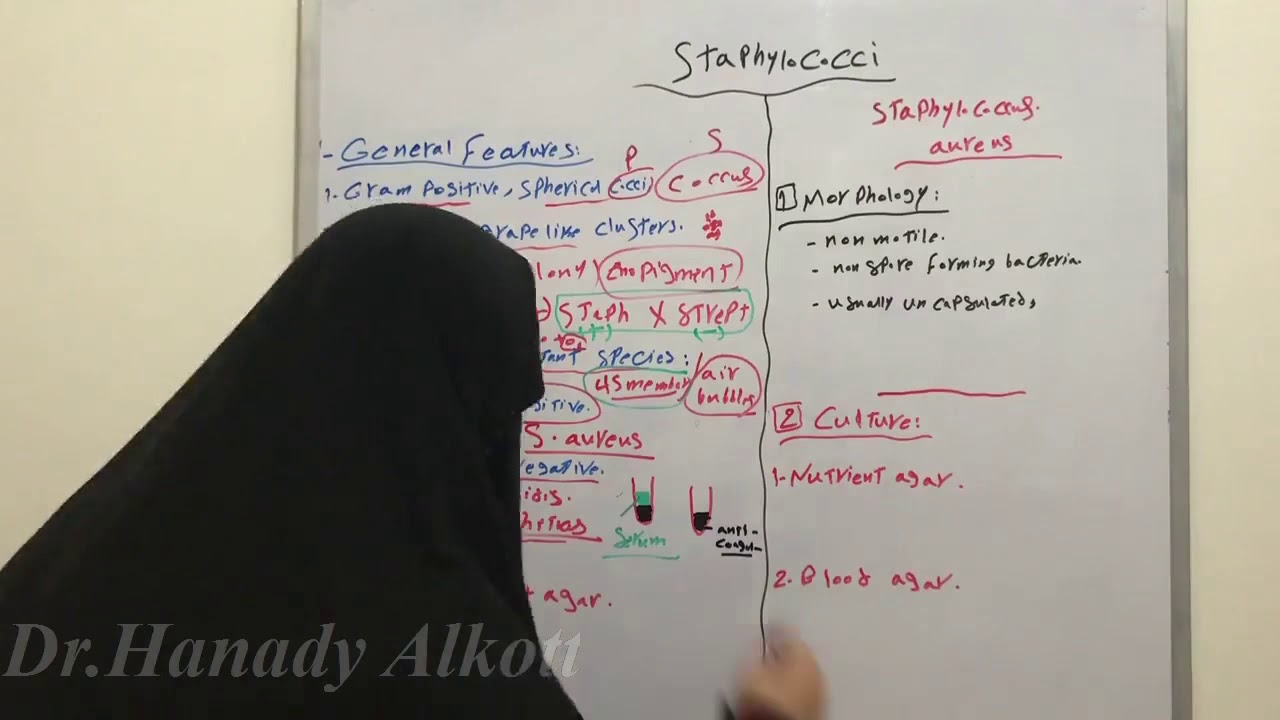 Staphylococci
- General Features:
P S
1. Gram positive, spherical cocci coccus
grapelike clusters.
colony endopigment
Staph X Strept
(+) (-)
O2
species:
45 members air bubbles
sitive.
S. aureus
negative.
idis.
Serum anti-coagul-
agar.
Staphylococcus.
aureus
1 Morphology:
- non motile.
- non spore forming bacteria.
- usually uncapsulated,
2 Culture:
1- Nutrient agar.
2. Blood agar.
Dr.Hanady Alkott